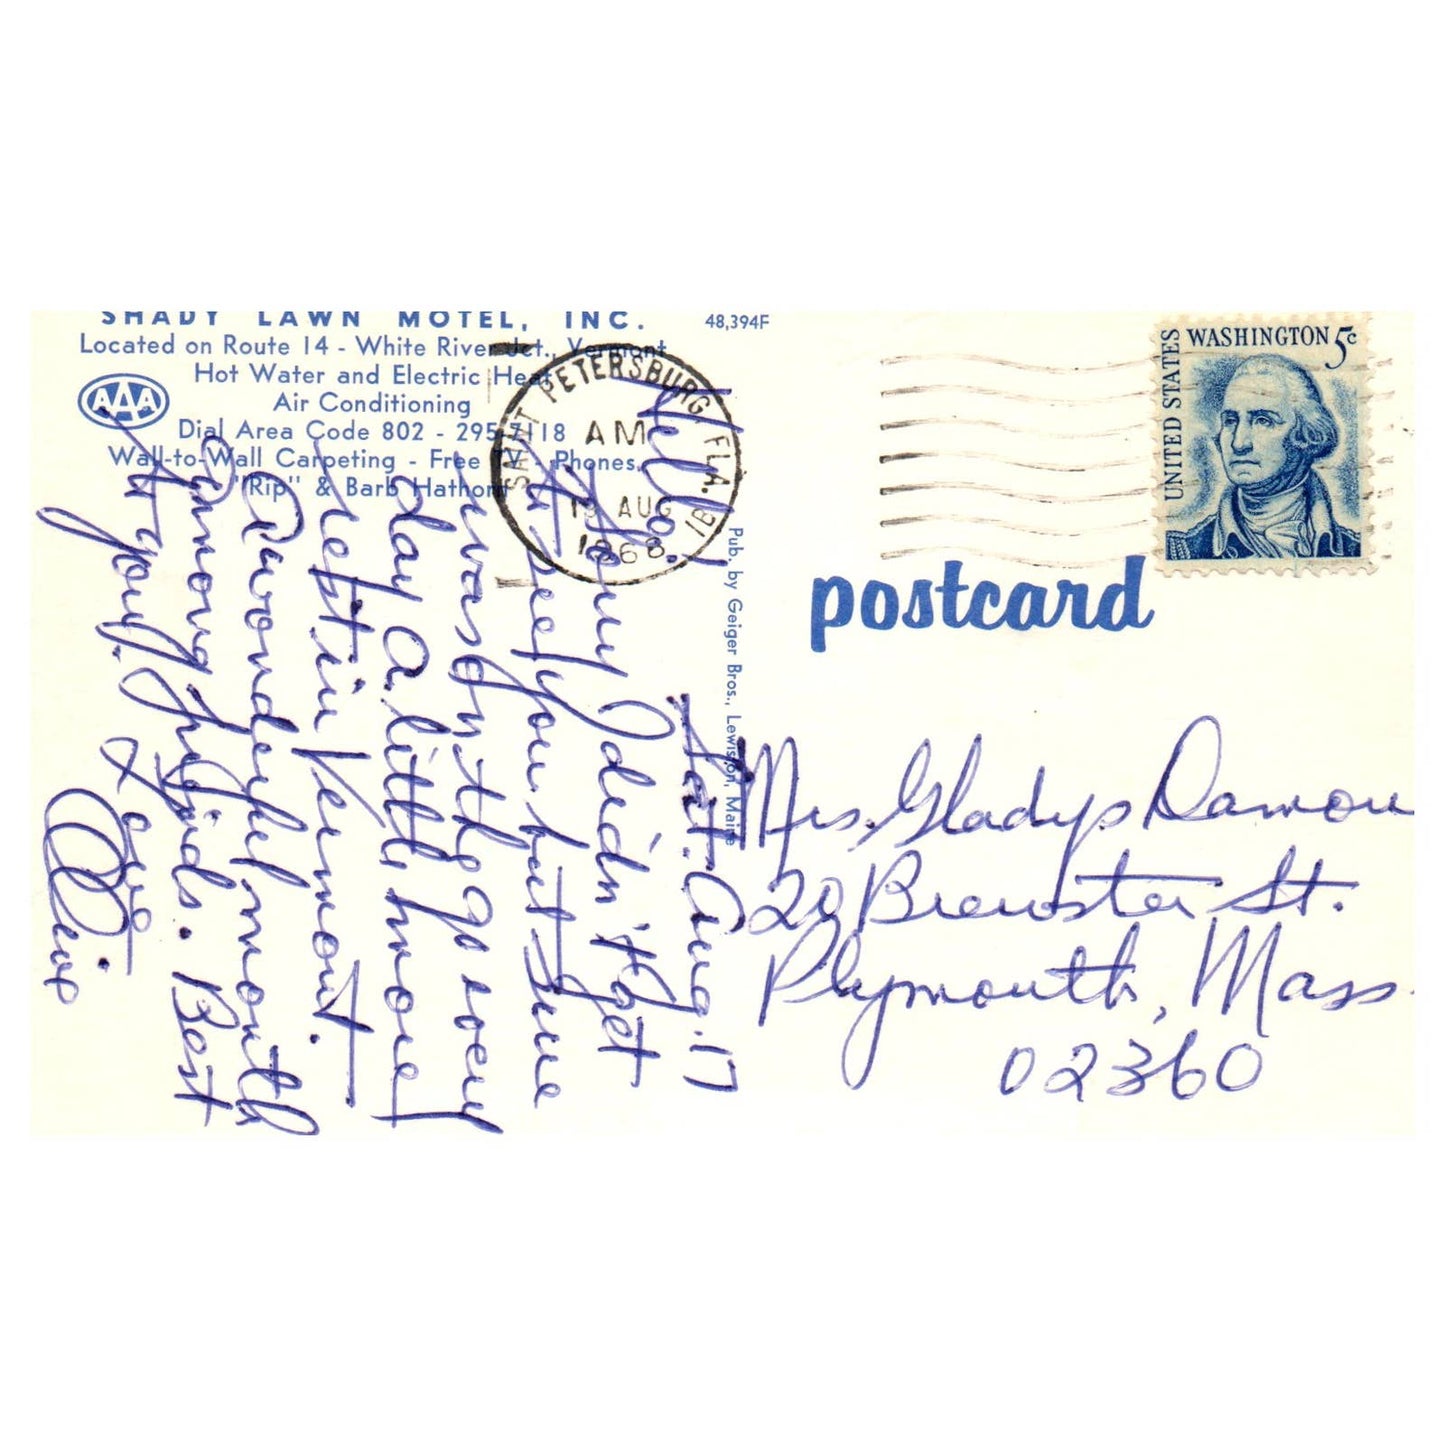 SHADY LAWN MOTEL, INC.
Located on Route 14 - White River Jct., Vermont
Hot Water and Electric Heat
Air Conditioning
Dial Area Code 802 - 295-7118
Wall-to-Wall Carpeting - Free TV - Phones.
"Rip" & Barb Hathorn
AAA
48,394F
SAINT PETERSBURG FLA. 1B
AM
19 AUG
1968
UNITED STATES
WASHINGTON 5c
postcard
Pub. by Geiger Bros., Lewiston, Maine
Sat. Aug. 17
Hello,
So sorry I didn't get
to see you but June
was on the go every
day. A little more
rest in Vermont.
A wonderful month
among friends. Best
to you.
Love
Olive
Mrs. Gladys Damon
20 Brewster St.
Plymouth, Mass.
02360